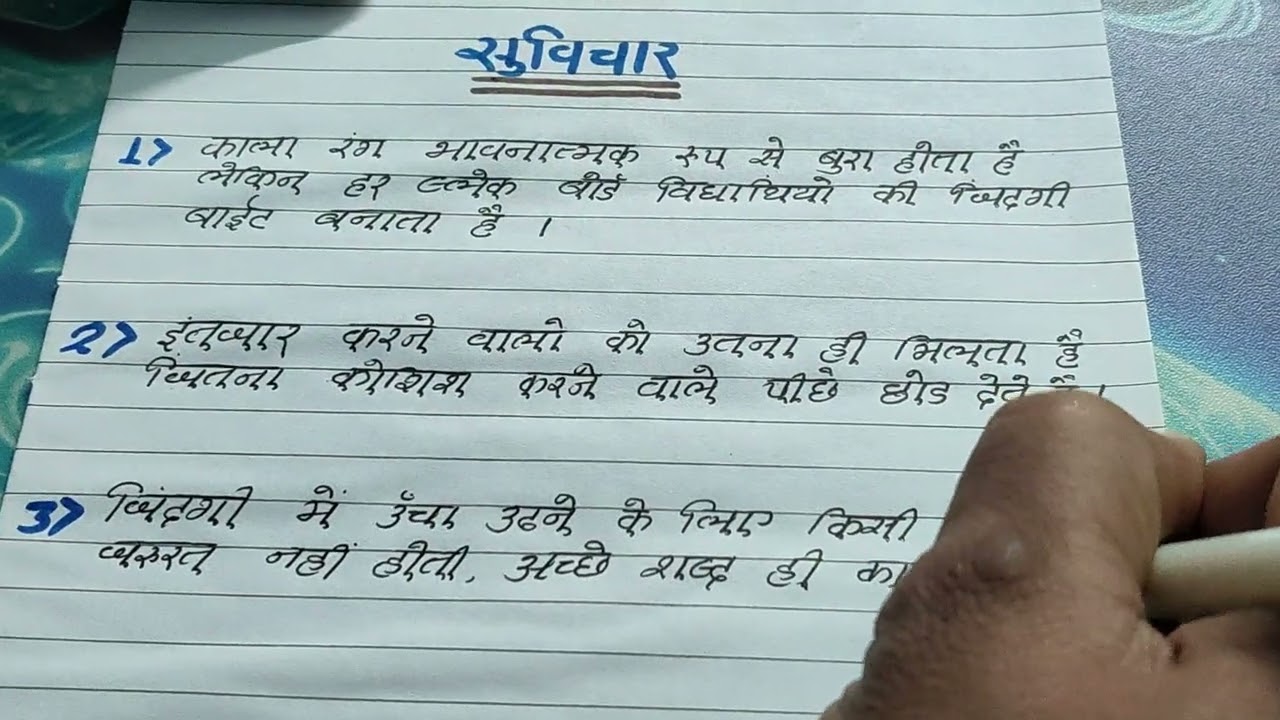 सुविचार
1> काला रंग भावनात्मक रूप से बुरा होता है
लेकिन हर ब्लेक बोर्ड विद्यार्थियो की जिंदगी
बाईट बनाता है ।
2> इंतज़ार करने वालो को उतना ही मिलता है
जितना कोशिश करने वाले पीछे छोड देते है।
3> जिंदगी में उँचा उठने के लिए किसी
जरुरत नहीं होती, अच्छे शब्द ही का